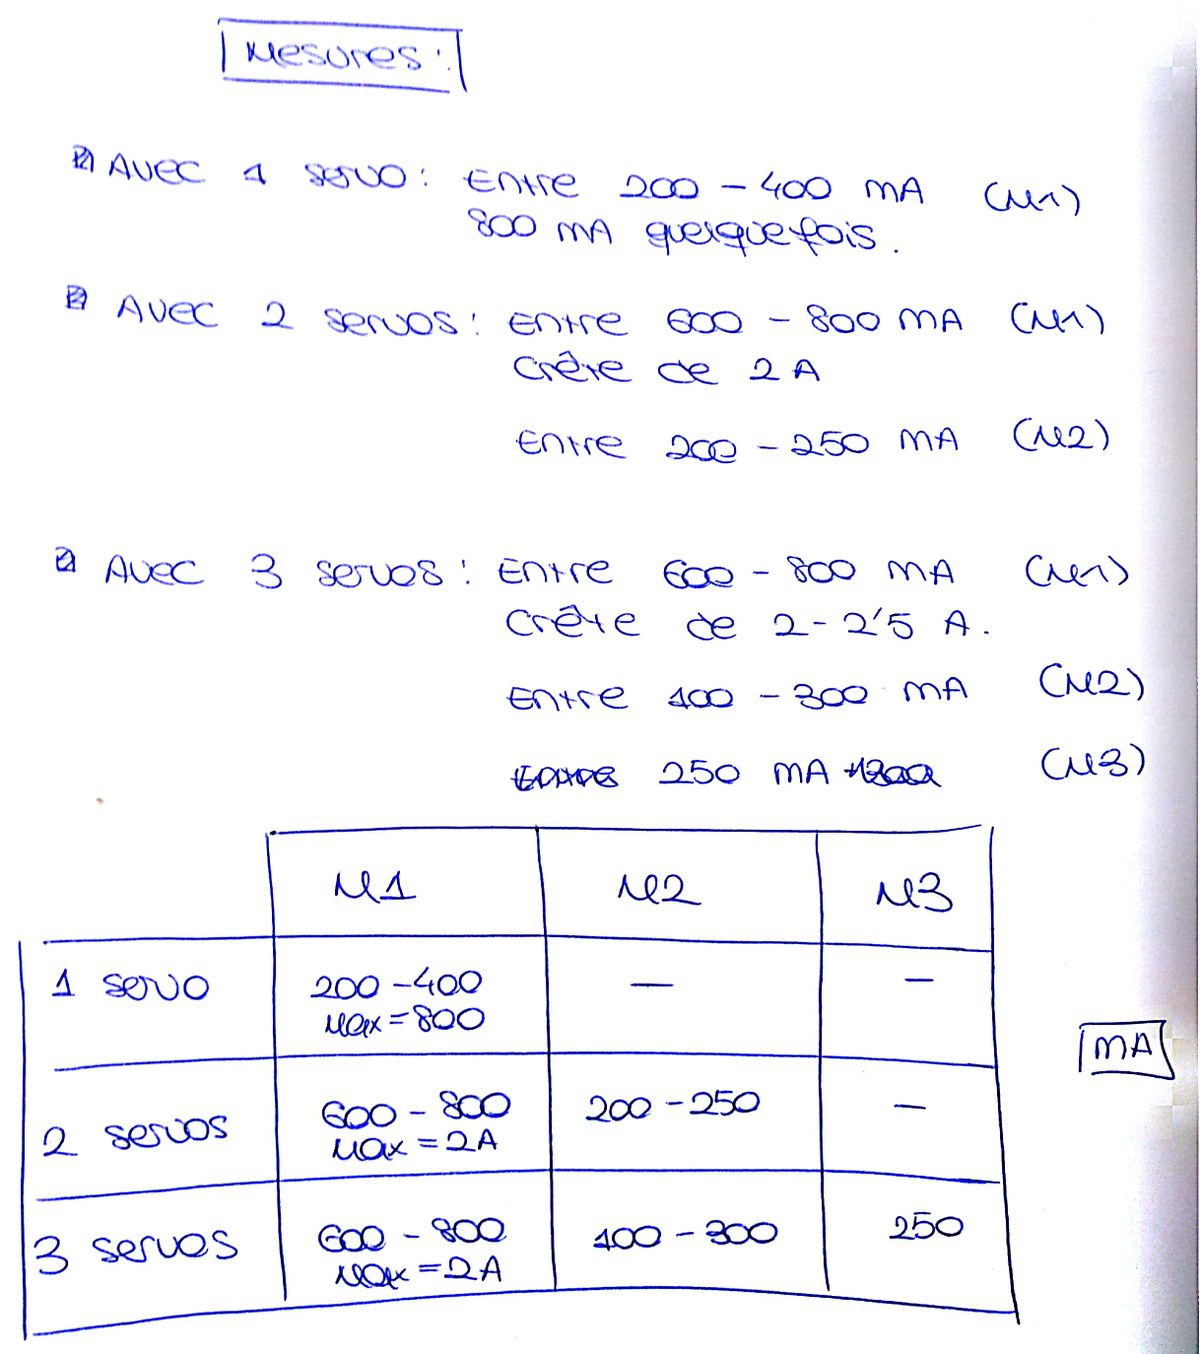 Mesures :
Avec 1 servo : Entre 200 - 400 mA (M1)
800 mA quelquefois.
Avec 2 servos : Entre 600 - 800 mA (M1)
Crête de 2 A
Entre 200 - 250 mA (M2)
Avec 3 servos : Entre 600 - 800 mA (M1)
Crête de 2 - 2'5 A.
Entre 100 - 300 mA (M2)
250 mA (M3)
M1 M2 M3
1 servo 200 - 400 — —
Max = 800
mA
2 servos 600 - 800 200 - 250 —
Max = 2A
3 servos 600 - 800 100 - 300 250
Max = 2A